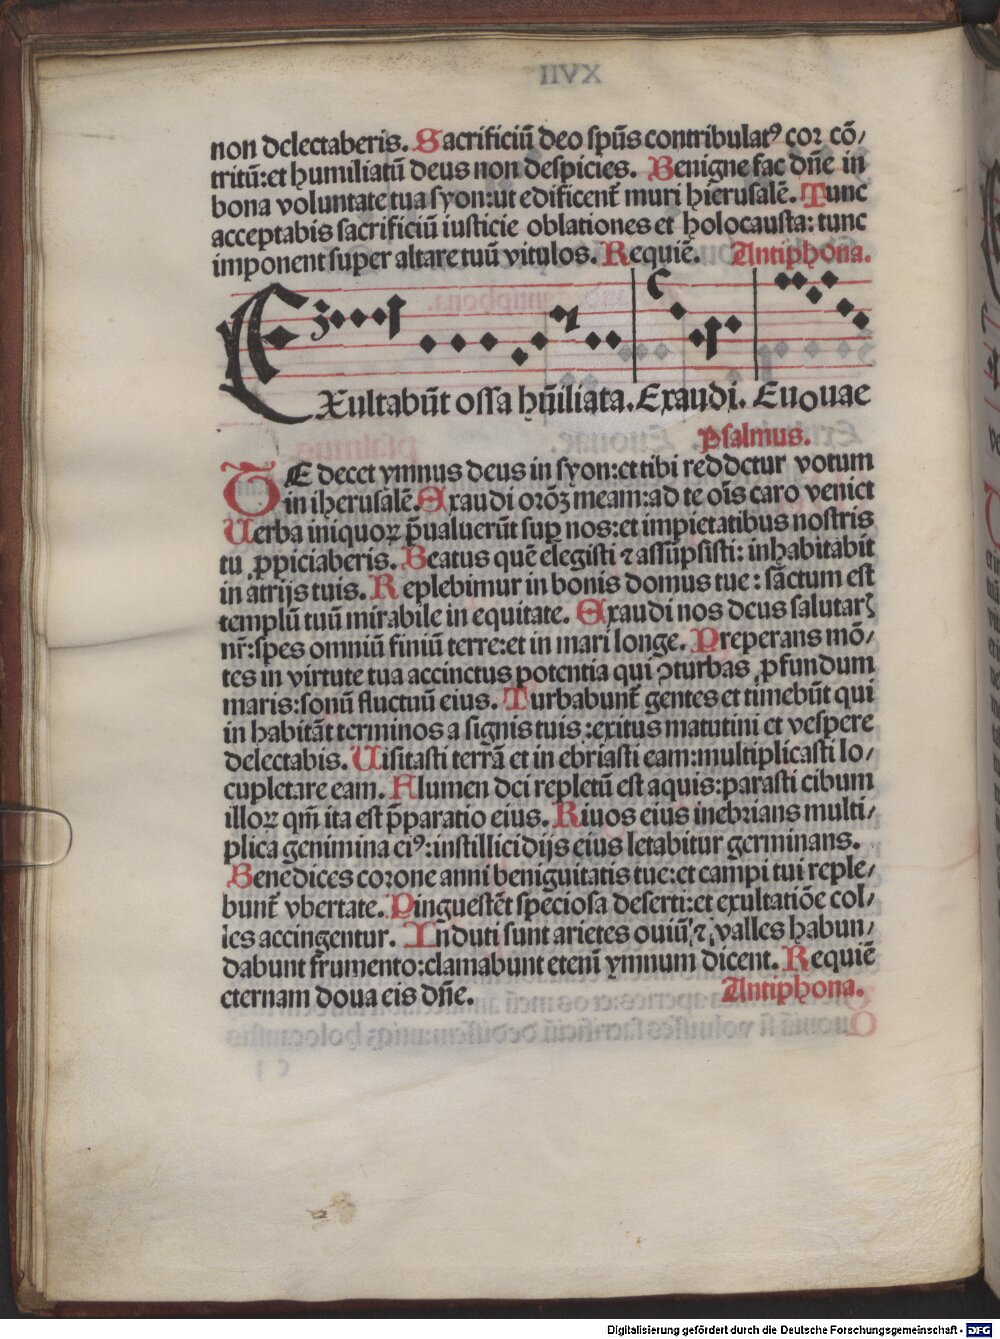 non delectaberis. Sacrificiũ deo spũs contribulatꝰ cor cõ/
tritũ: et humiliatũ deus non despicies. Benigne fac dñe in
bona voluntate tua syon: ut edificent᷑ muri hierusalẽ. Tunc
acceptabis sacrificiũ iusticie oblationes et holocausta: tunc
imponent super altare tuũ vitulos. Requiẽ. Antiphona.
EXultabũt ossa hũiliata. Exaudi. Euouae
Psalmus.
TE decet ymnus deus in syon: et tibi reddetur votum
in iherusalẽ. Exaudi orõꝫ meam: ad te oĩs caro veniet
Verba iniquoꝝ p̃ualuerũt suꝑ nos: et impietatibus nostris
tu ꝓpiciaberis. Beatus quẽ elegisti ⁊ assũpsisti: inhabitabit
in atrijs tuis. Replebimur in bonis domus tue: sãctum est
templũ tuũ mirabile in equitate. Exaudi nos deus salutarꝭ
nr̃: spes omniũ finiũ terre: et in mari longe. Preperans mõ/
tes in virtute tua accinctus potentia qui ꝯturbas ꝓfundum
maris: sonũ fluctuũ eius. Turbabunt᷑ gentes et timebũt qui
in habitãt terminos a signis tuis: exitus matutini et vespere
delectabis. Visitasti terrã et in ebriasti eam: multiplicasti lo/
cupletare eam. Flumen dei repletũ est aquis: parasti cibum
illoꝝ qm̃ ita est p̃paratio eius. Riuos eius inebrians multi/
plica genimina eiꝰ: in stillicidijs eius letabitur germinans.
Benedices corone anni beniguitatis tue: et campi tui reple/
bunt᷑ vbertate. Pinguescẽt speciosa deserti: et exultatiõe col/
les accingentur. Induti sunt arietes ouiũ, ⁊ valles habun/
dabunt frumento: clamabunt etenĩ ymnum dicent. Requiẽ
eternam doua eis dñe. Antiphona.
Digitalisierung gefördert durch die Deutsche Forschungsgemeinschaft - DFG